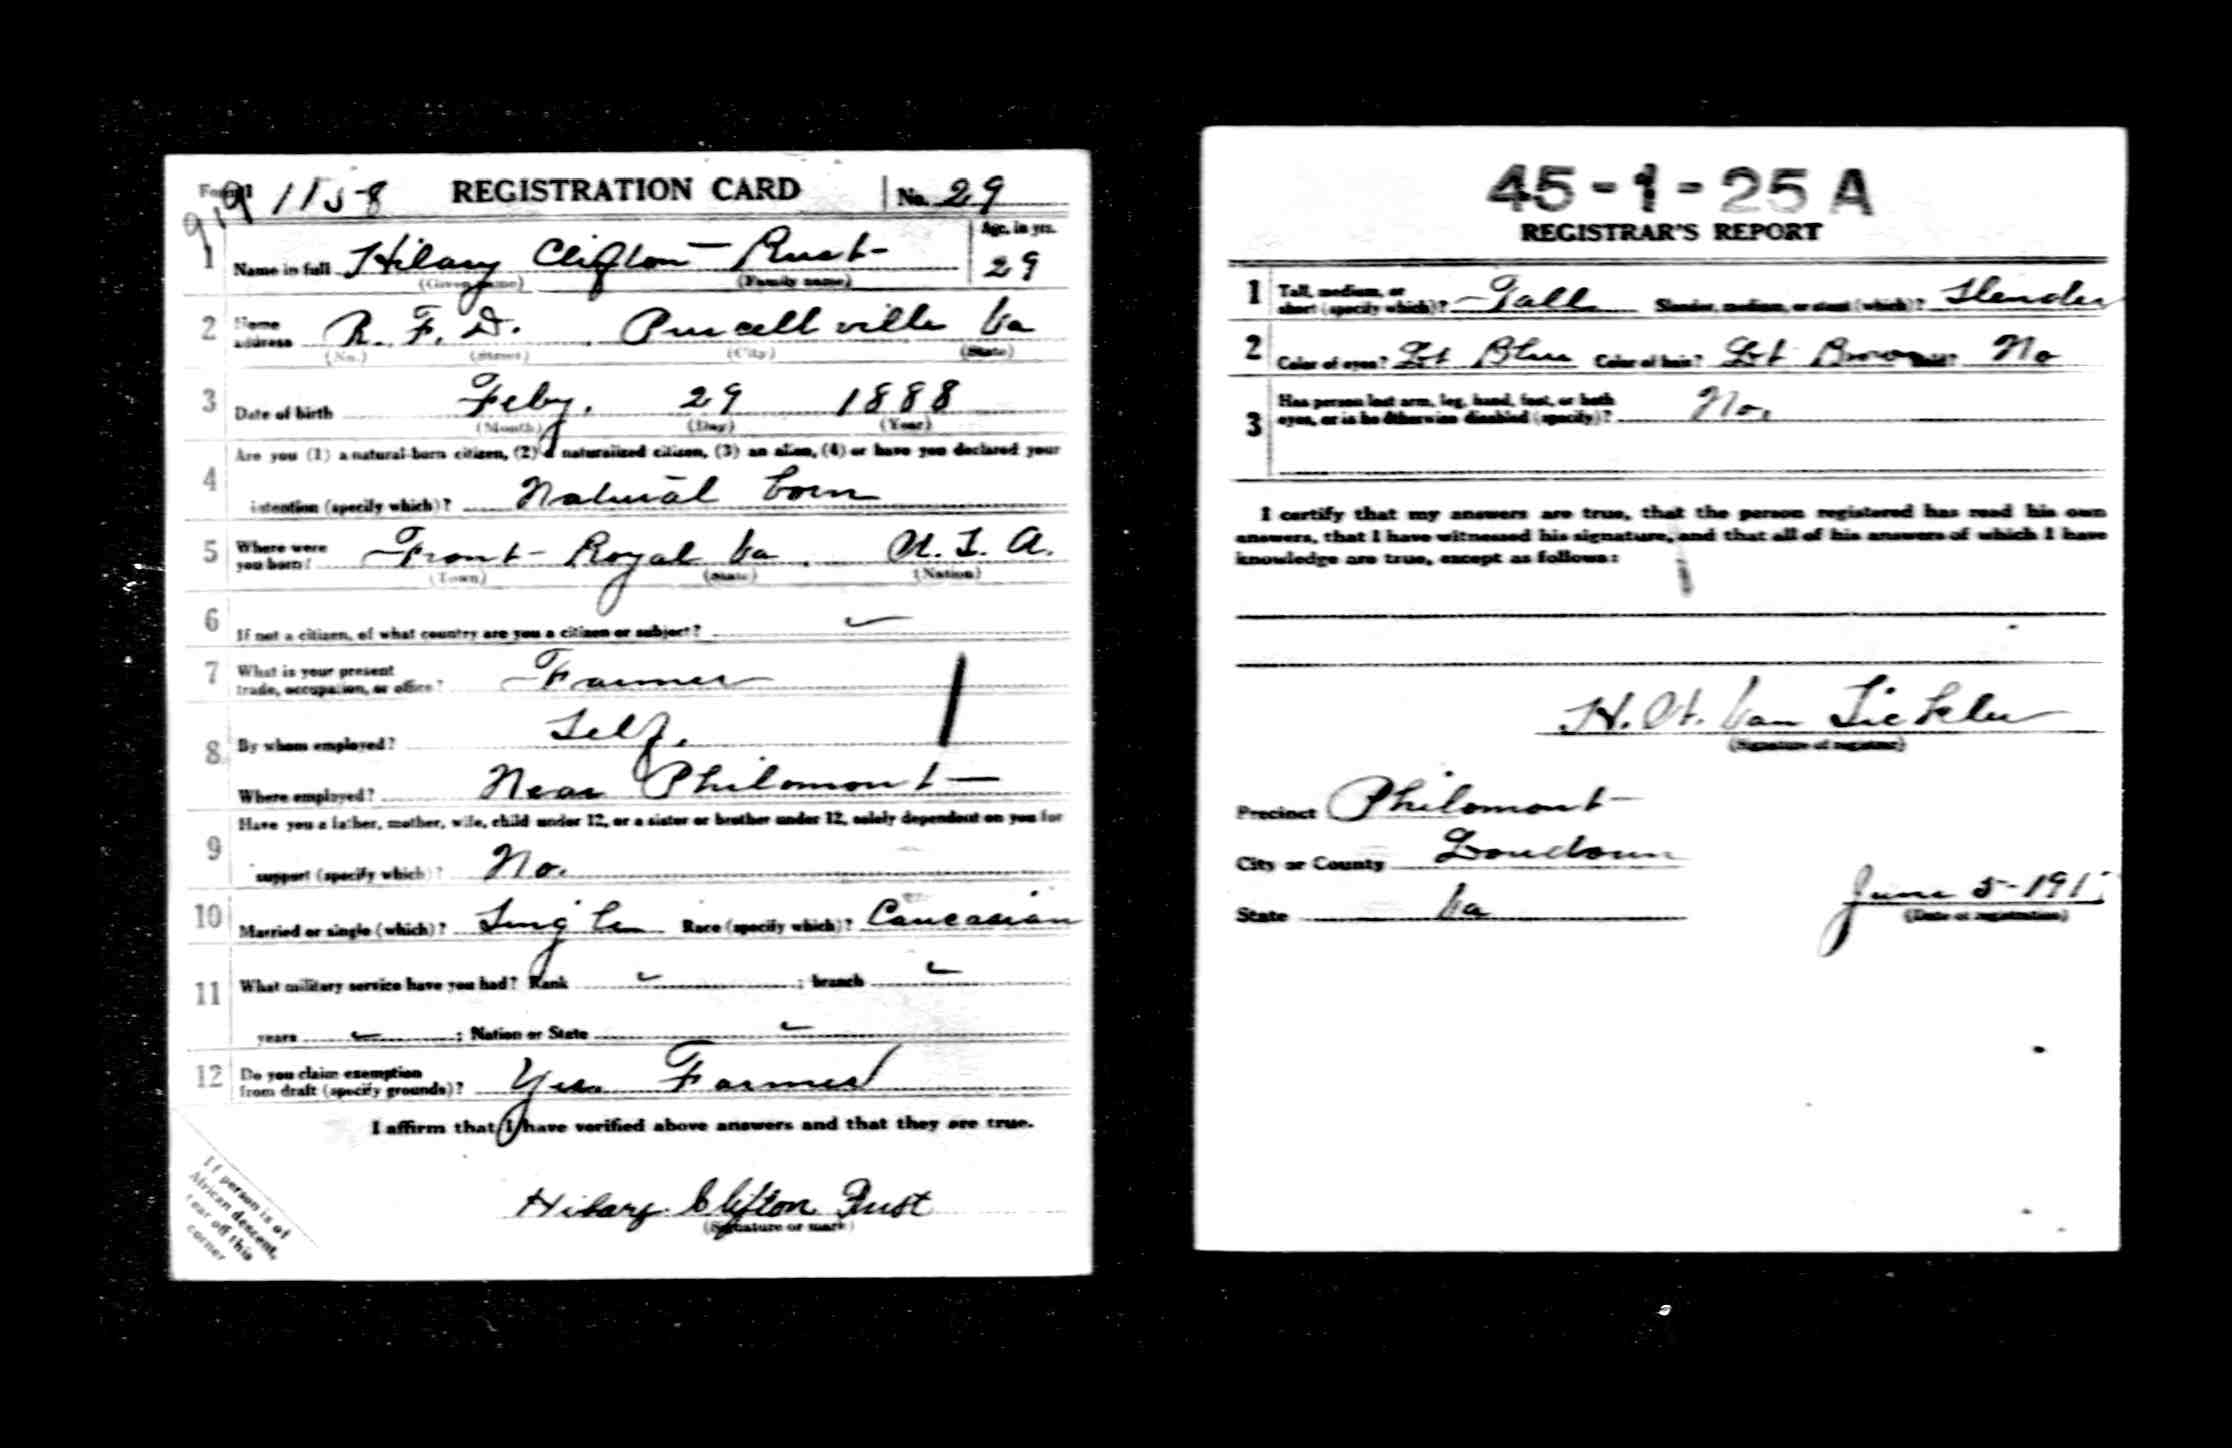 Form 1 1158 REGISTRATION CARD No. 29
919
1 Name in full Hilary Clifton Rust Age, in yrs. 29
(Given name) (Family name)
2 Home address R. F. D. Purcellville Va
(No.) (Street) (City) (State)
3 Date of birth Feby. 29 1888
(Month) (Day) (Year)
Are you (1) a natural-born citizen, (2) a naturalized citizen, (3) an alien, (4) or have you declared your
4 intention (specify which)? Natural born
5 Where were you born? Front Royal Va U. S. A.
(Town) (State) (Nation)
6 If not a citizen, of what country are you a citizen or subject?
7 What is your present
trade, occupation, or office? Farmer
8 By whom employed? Self.
Where employed? Near Philomont
Have you a father, mother, wife, child under 12, or a sister or brother under 12, solely dependent on you for
9 support (specify which)? No.
10 Married or single (which)? Single Race (specify which)? Caucasian
11 What military service have you had? Rank ; branch
years ; Nation or State
12 Do you claim exemption
from draft (specify grounds)? Yes. Farmer
I affirm that I have verified above answers and that they are true.
Hilary Clifton Rust
(Signature or mark)
If person is of
African descent,
tear off this
corner
45-1-25 A
REGISTRAR'S REPORT
1 Tall, medium, or
short (specify which)? Tall Slender, medium, or stout (which)? Slender
2 Color of eyes? Lgt Blue Color of hair? Lgt Brown Bald? No
3 Has person lost arm, leg, hand, foot, or both
eyes, or is he otherwise disabled (specify)? No.
I certify that my answers are true, that the person registered has read his own
answers, that I have witnessed his signature, and that all of his answers of which I have
knowledge are true, except as follows:
Van Sickler
(Signature of registrar)
Precinct Philomont
City or County Loudoun
State Va
June 5-191
(Date of registration)